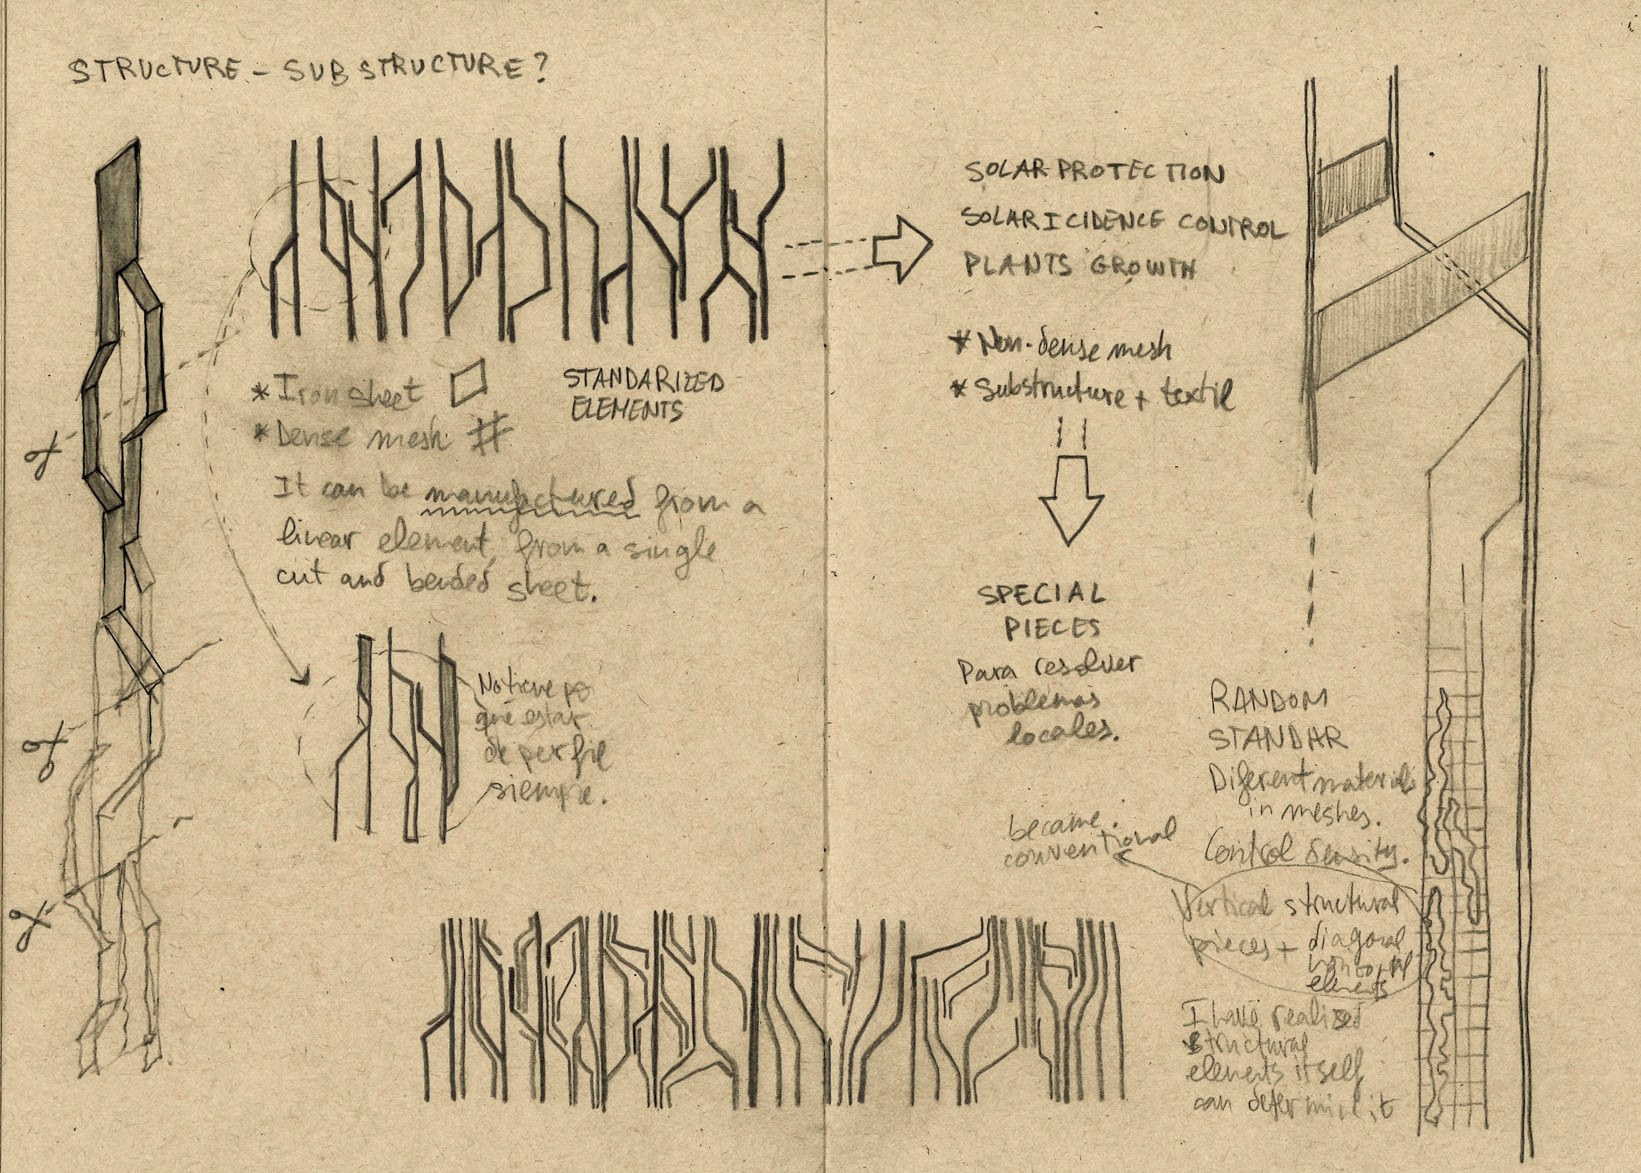 STRUCTURE - SUBSTRUCTURE?
* Iron sheet
* Dense mesh #
STANDARIZED
ELEMENTS
It can be manufactured from a
linear element, from a single
cut and bended sheet.
No tiene
que estar
de perfil
siempre.
SOLAR PROTECTION
SOLAR ICIDENCE CONTROL
PLANTS GROWTH
* Non-dense mesh
* Substructure + textil
SPECIAL
PIECES
Para resolver
problemas
locales.
became
conventional
RANDOM
STANDAR
Diferent materials
in meshes.
Control density.
Vertical structural
pieces + diagonal
elements
I have realized
structural
elements itself
can determine it